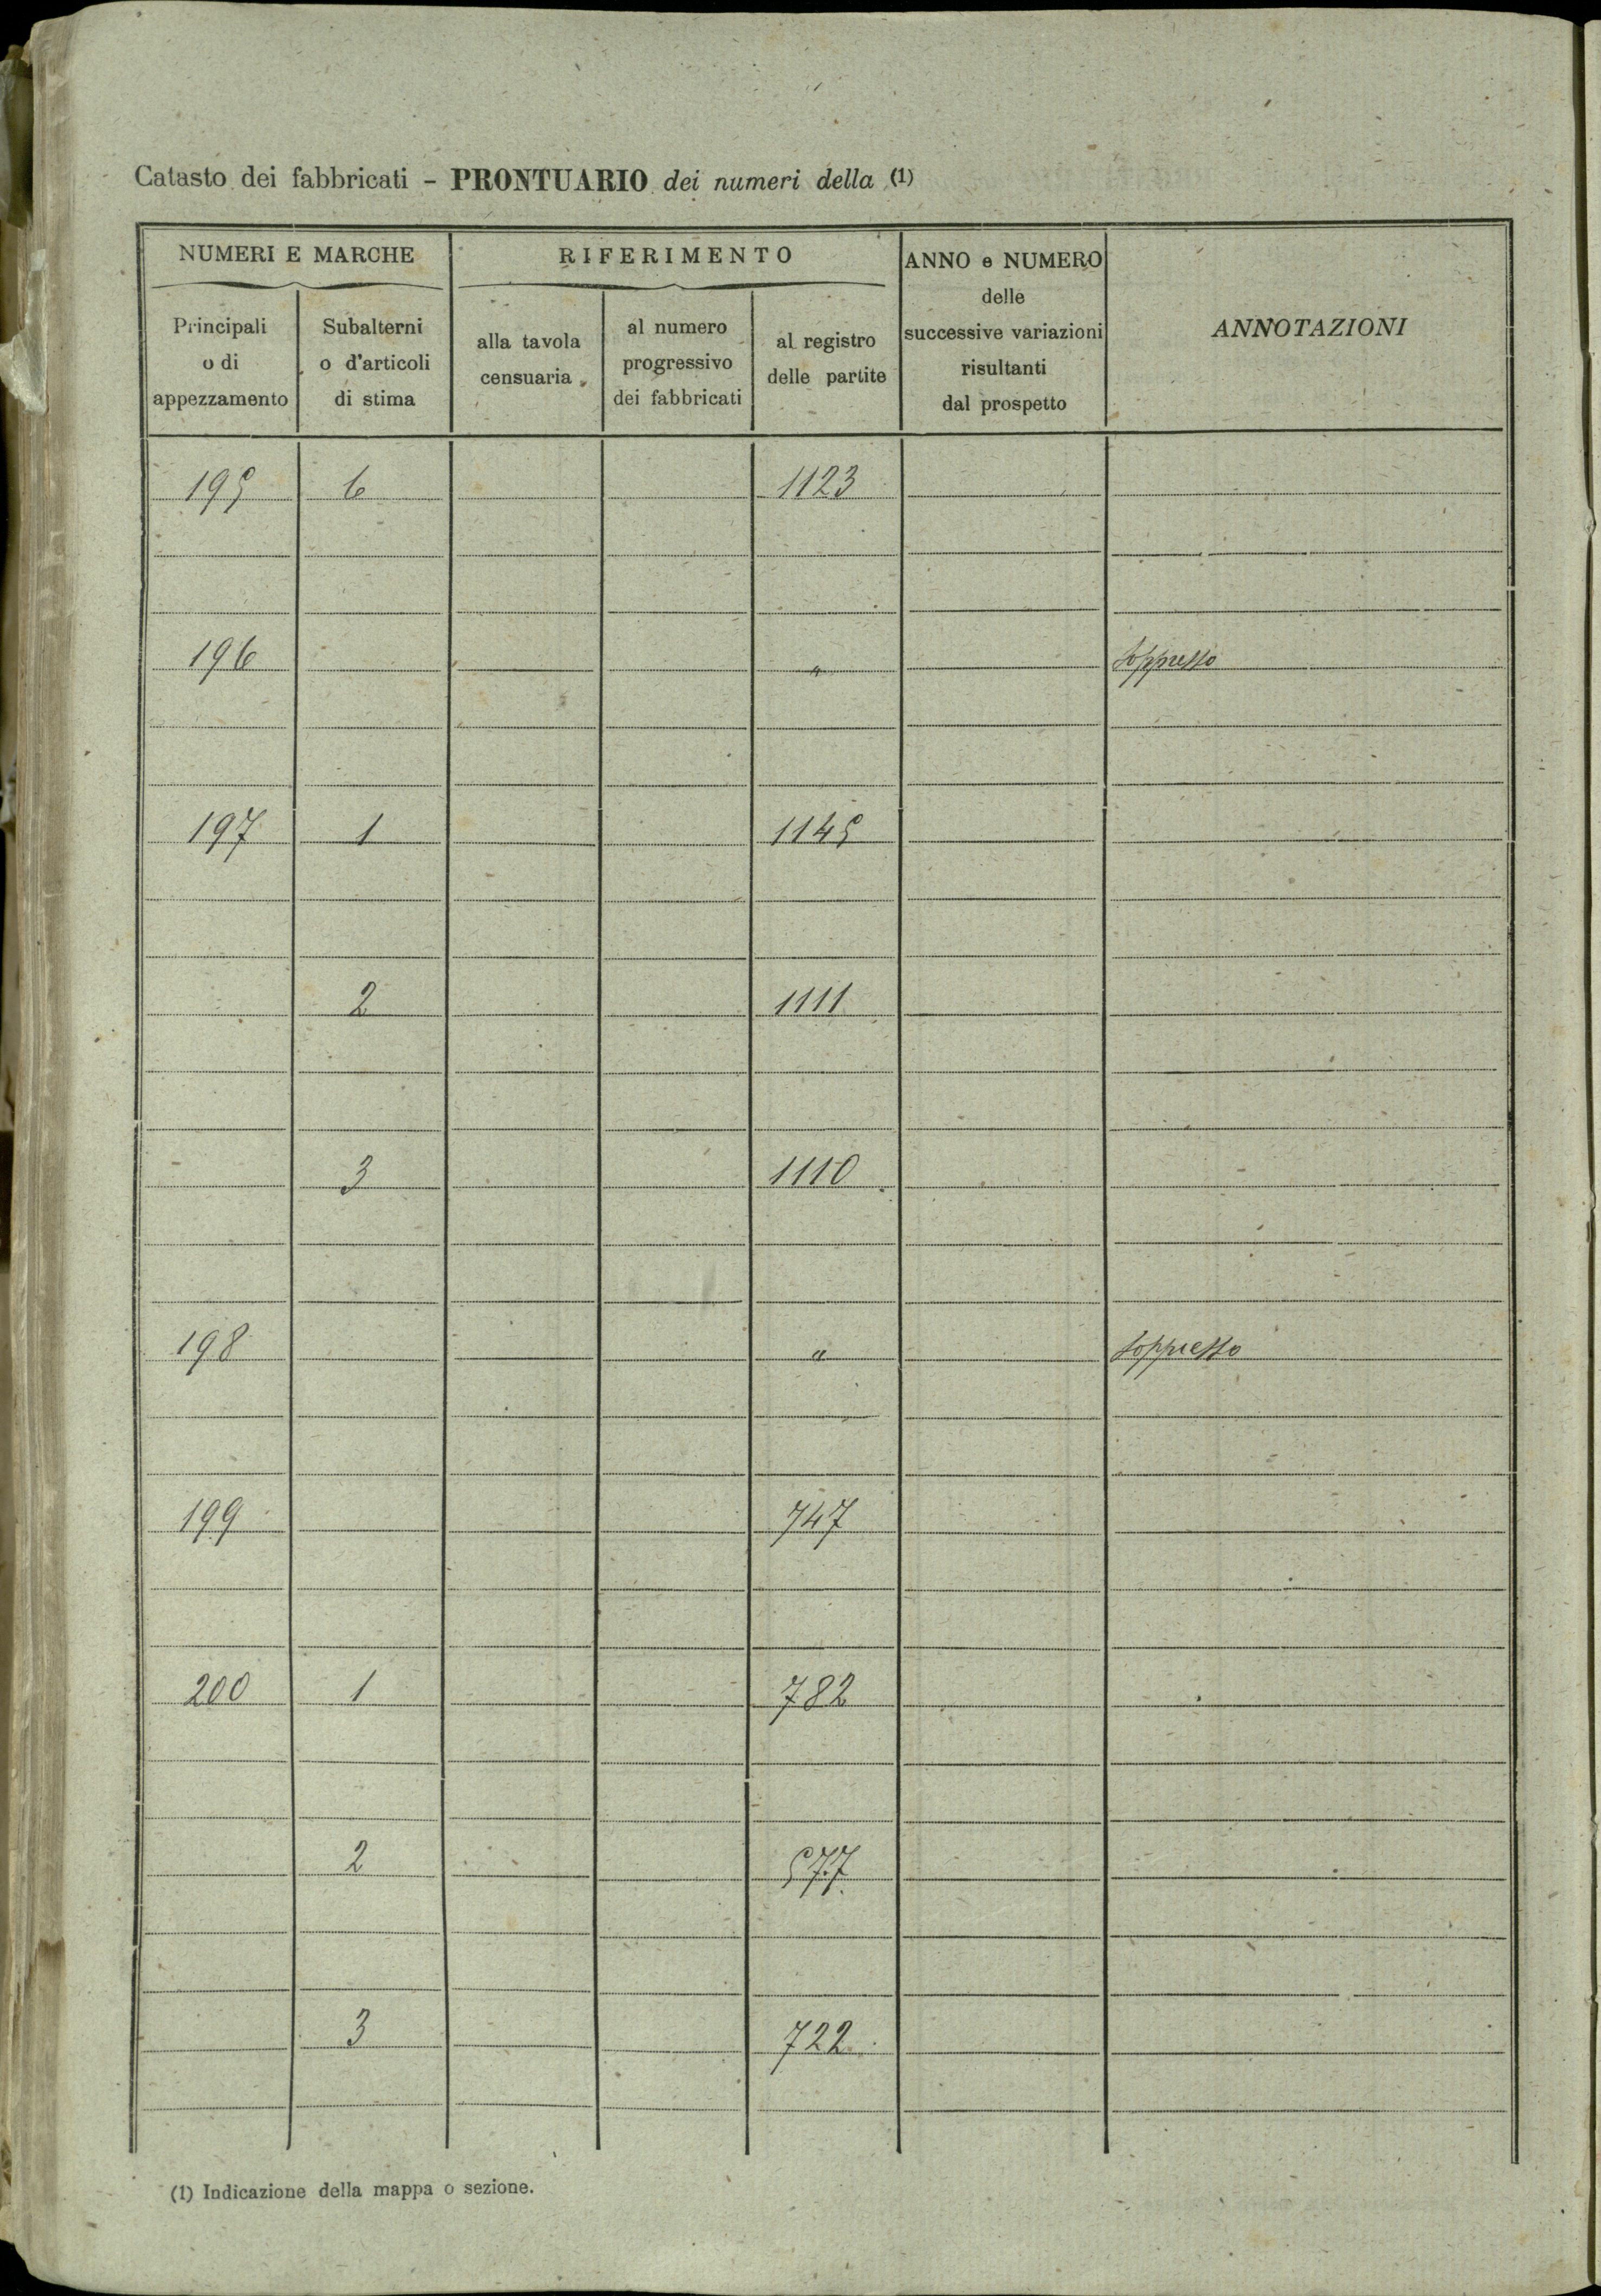 Catasto dei fabbricati – PRONTUARIO dei numeri della (1)
NUMERI E MARCHE
RIFERIMENTO
ANNO e NUMERO
delle
successive variazioni
risultanti
dal prospetto
ANNOTAZIONI
Principali
o di
appezzamento
Subalterni
o d'articoli
di stima
alla tavola
censuaria
al numero
progressivo
dei fabbricati
al registro
delle partite
195 6 1123
196 " soppresso
197 1 1145
2 1111
3 1110
198 " soppresso
199 747
200 1 782
2 577
3 722
(1) Indicazione della mappa o sezione.